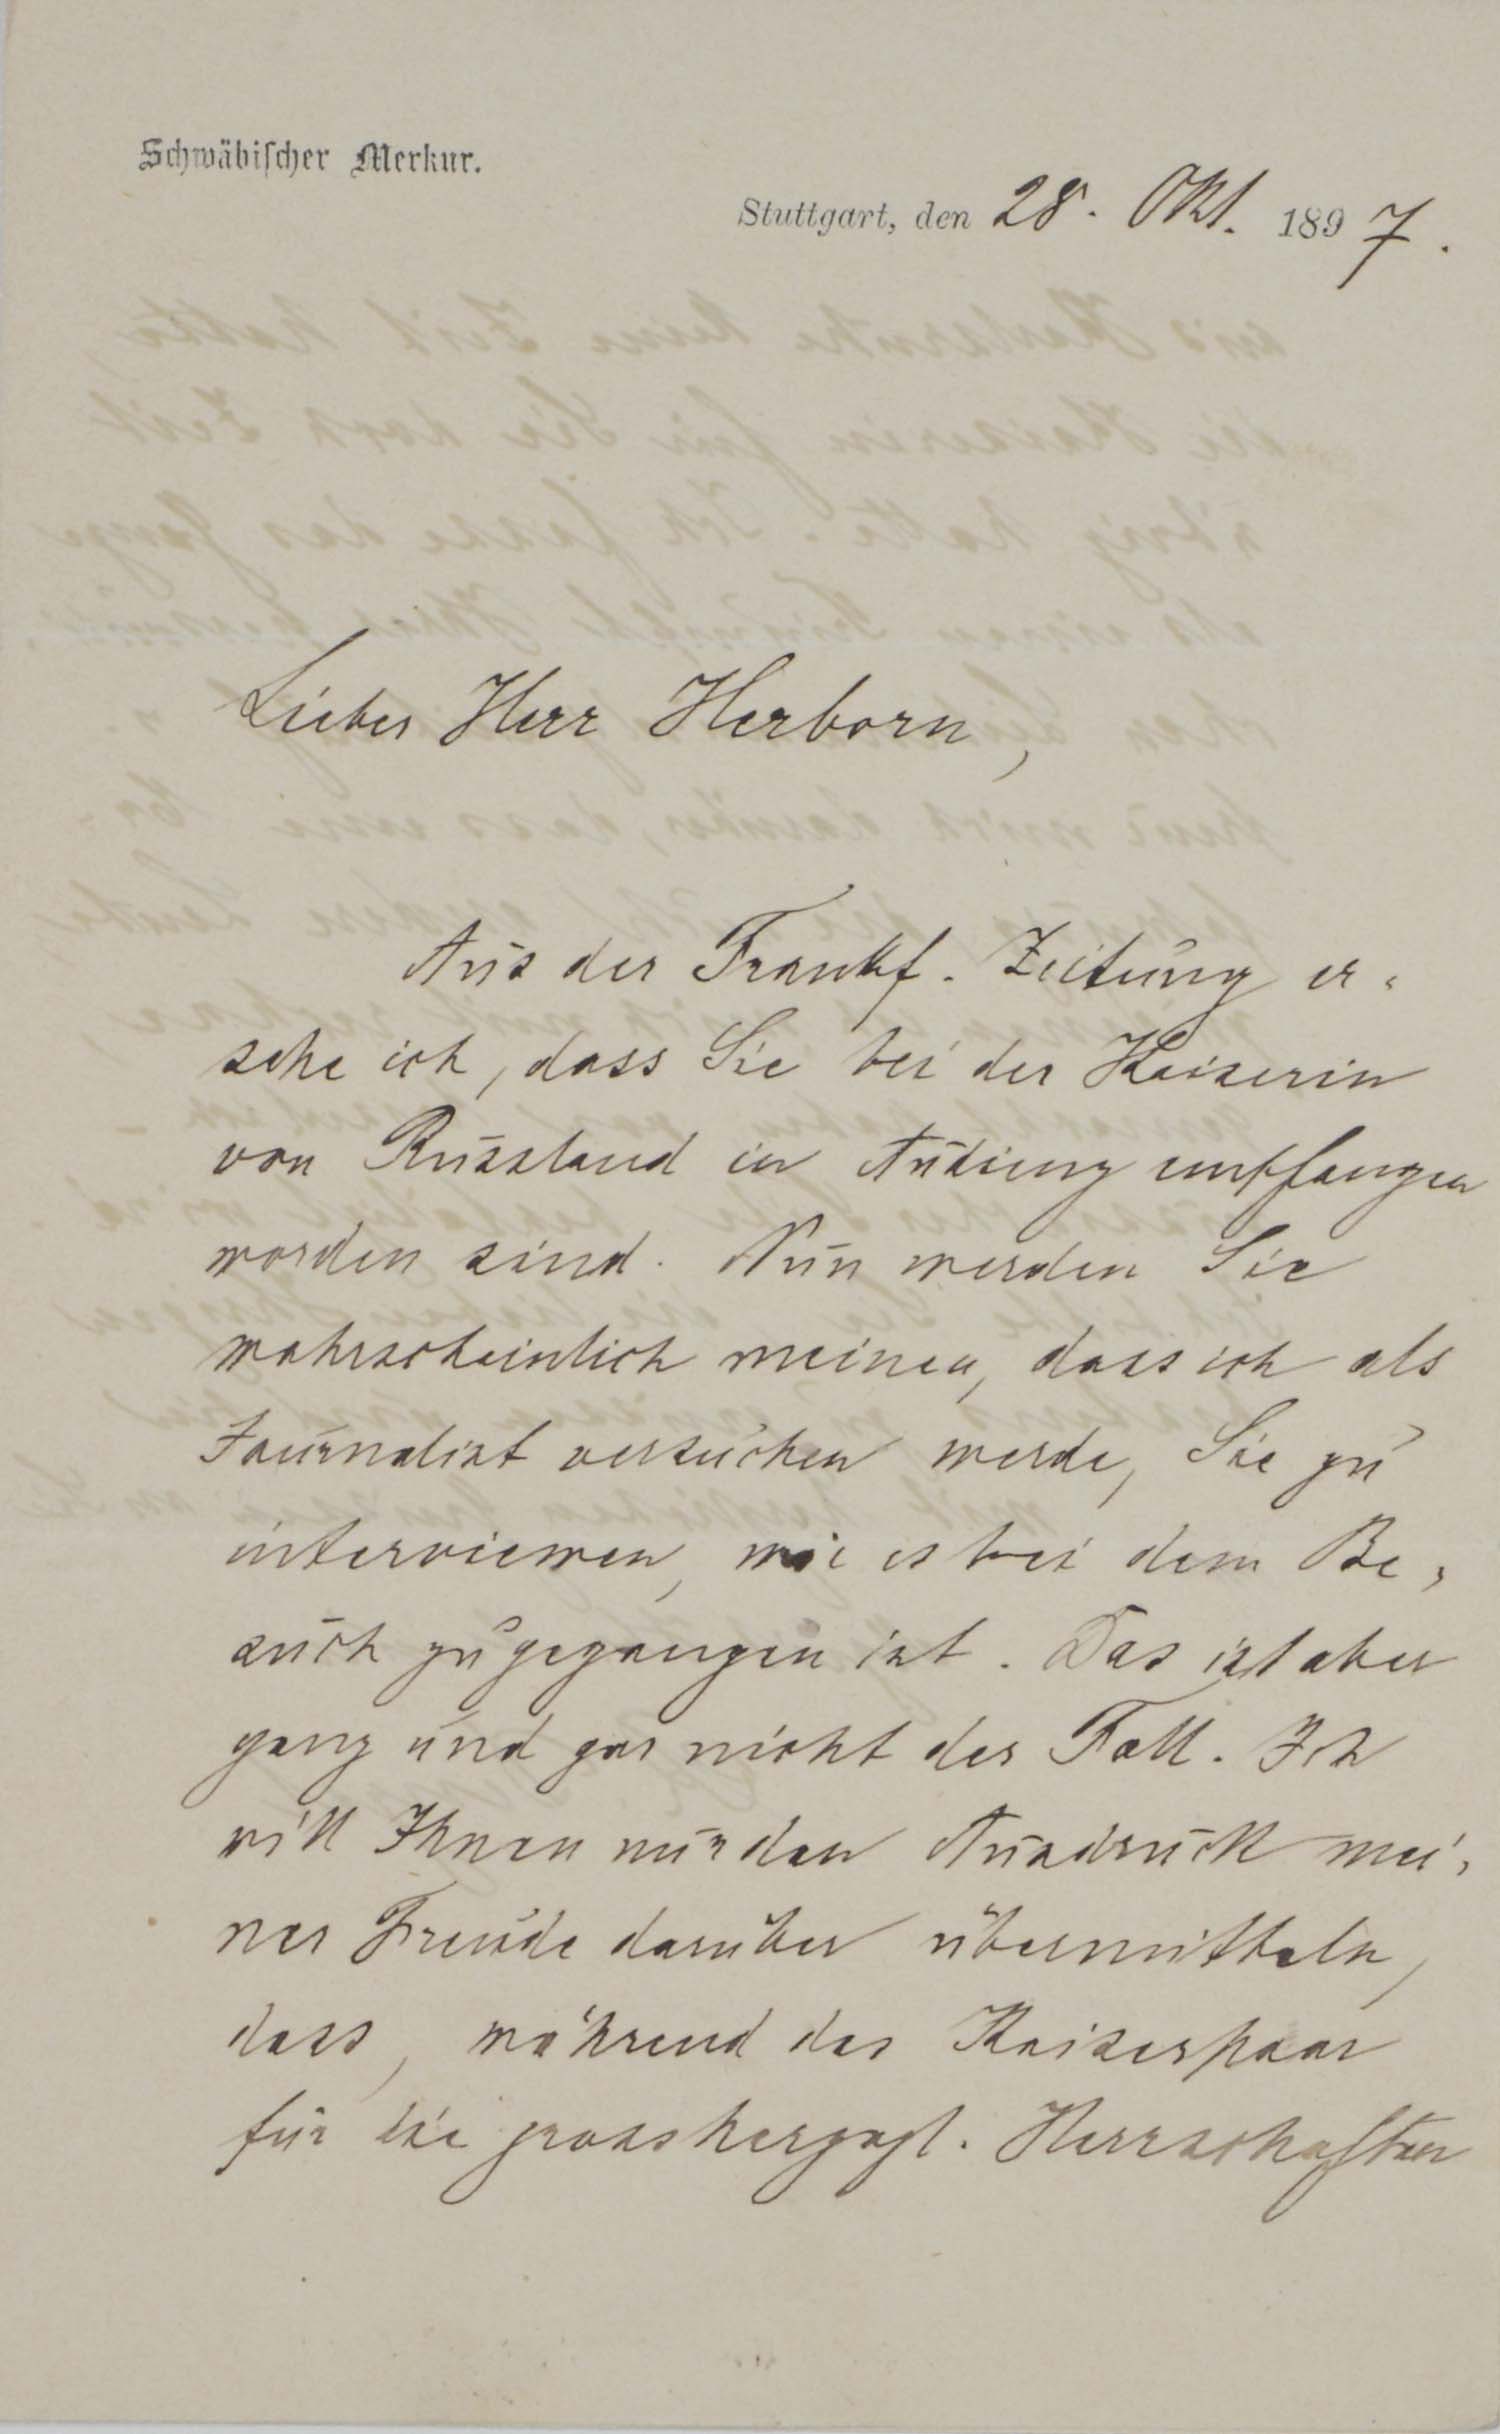 Schwäbischer Merkur.
Stuttgart, den 28. Okt. 1897.
Lieber Herr Herborn,
Aus der Frankf. Zeitung er-
sehe ich, dass Sie bei der Kaiserin
von Russland in Audienz empfangen
worden sind. Nun werden Sie
wahrscheinlich meinen, dass ich als
Journalist versuchen werde, Sie zu
interviewen, wie es bei dem Be-
such zugegangen ist. Das ist aber
ganz und gar nicht der Fall. Ich
will Ihnen nur den Ausdruck mei-
ner Freude darüber übermitteln,
dass, während das Kaiserpaar
für die grossherzogl. Herrschaften